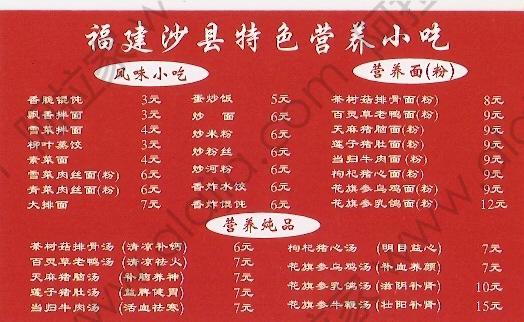 福建沙县特色营养小吃
风味小吃
营养面(粉)
香脆馄饨 3元
飘香拌面 3元
雪菜拌面 4元
柳叶蒸饺 3元
素菜面 4元
雪菜肉丝面(粉) 6元
青菜肉丝面(粉) 6元
大排面 7元
蛋炒饭 5元
炒 面 6元
炒米粉 6元
炒粉丝 6元
炒河粉 6元
香炸水饺 6元
香炸馄饨 6元
茶树菇排骨面(粉) 8元
百灵草老鸭面(粉) 9元
天麻猪脑面(粉) 9元
莲子猪肚面(粉) 9元
当归牛肉面(粉) 9元
枸杞猪心面(粉) 9元
花旗参乌鸡面(粉) 9元
花旗参乳鸽面(粉) 12元
营养炖品
茶树菇排骨汤 (清凉补钙) 6元
百灵草老鸭汤 (清凉祛火) 7元
天麻猪脑汤 (补脑养神) 7元
莲子猪肚汤 (益脾健胃) 7元
当归牛肉汤 (活血祛寒) 7元
枸杞猪心汤 (明目益心) 7元
花旗参乌鸡汤 (补血养颜) 7元
花旗参乳鸽汤 (滋阴补肾) 10元
花旗参牛鞭汤 (壮阳补肾) 15元